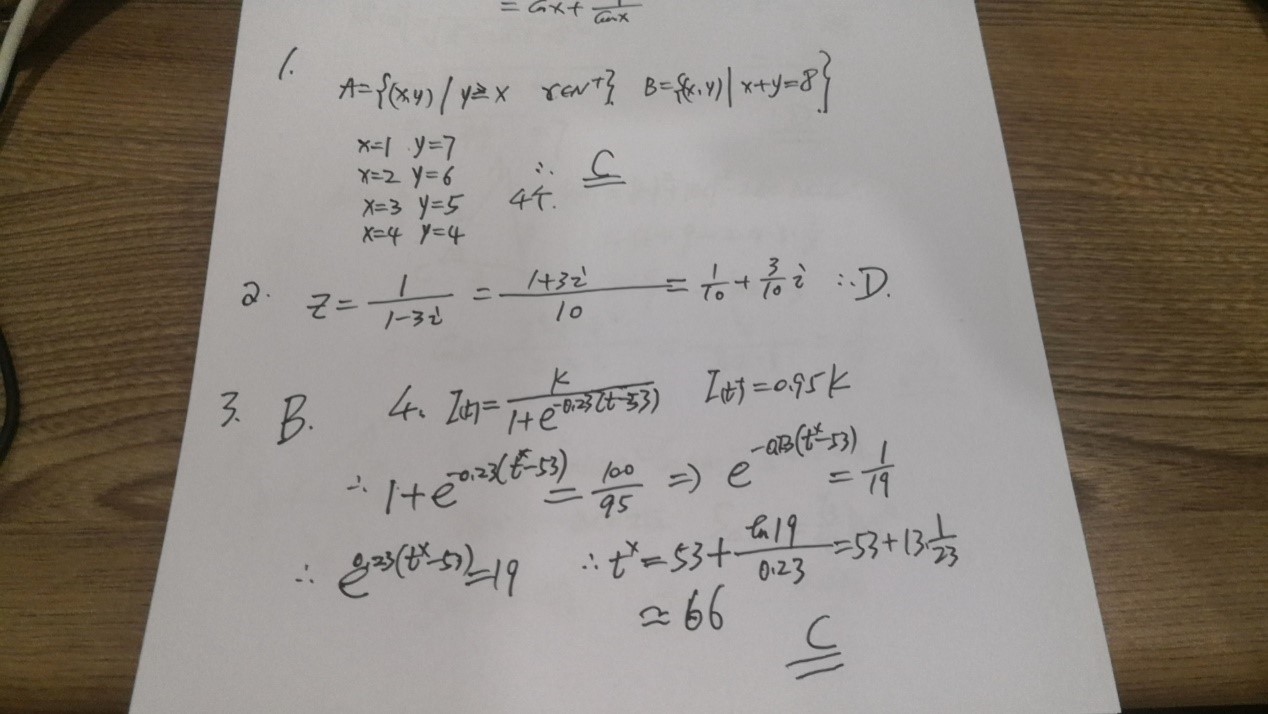 = cosx + 1/cosx
1.
A={(x,y) | y≥x x∈N⁺} B={(x,y) | x+y=8}
x=1 y=7
x=2 y=6
x=3 y=5
x=4 y=4
∴ 4个. C
2. z = 1/(1-3i) = (1+3i)/10 = 1/10 + 3/10 i ∴D.
3. B.
4. I(t) = K/(1+e^(-0.23(t-53))) I(t)=0.95K
∴ 1+e^(-0.23(t*-53)) = 100/95 => e^(-0.23(t*-53)) = 1/19
∴ e^(0.23(t*-53)) = 19 ∴ t* = 53 + ln19/0.23 = 53+13 1/23
≈ 66 C